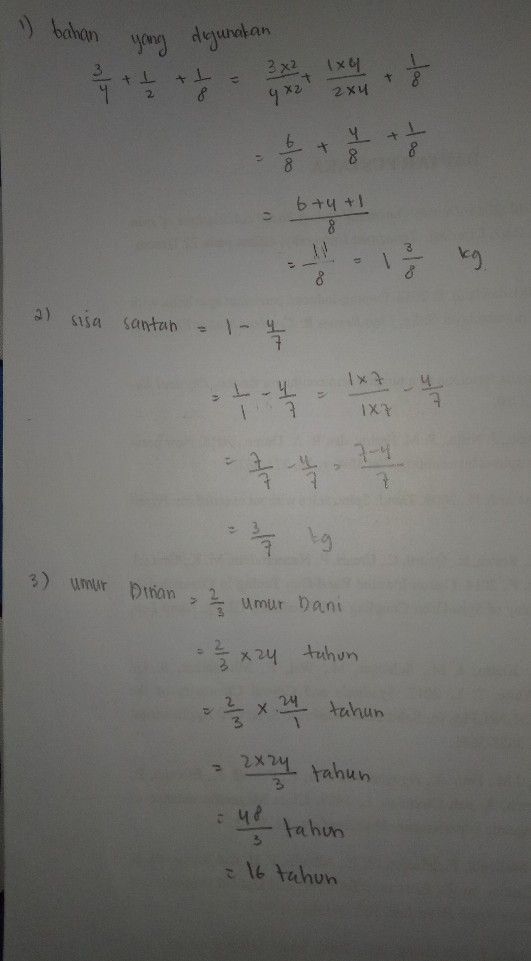 1) bahan yang digunakan
3/4 + 1/2 + 1/8 = 3x2/4x2 + 1x4/2x4 + 1/8
= 6/8 + 4/8 + 1/8
= 6+4+1/8
= 11/8 = 1 3/8 kg
2) sisa santan = 1 - 4/7
= 1/1 - 4/7 = 1x7/1x7 - 4/7
= 7/7 - 4/7 = 7-4/7
= 3/7 kg
3) umur Dinan = 2/3 umur Dani
= 2/3 x 24 tahun
= 2/3 x 24/1 tahun
= 2x24/3 tahun
= 48/3 tahun
= 16 tahun